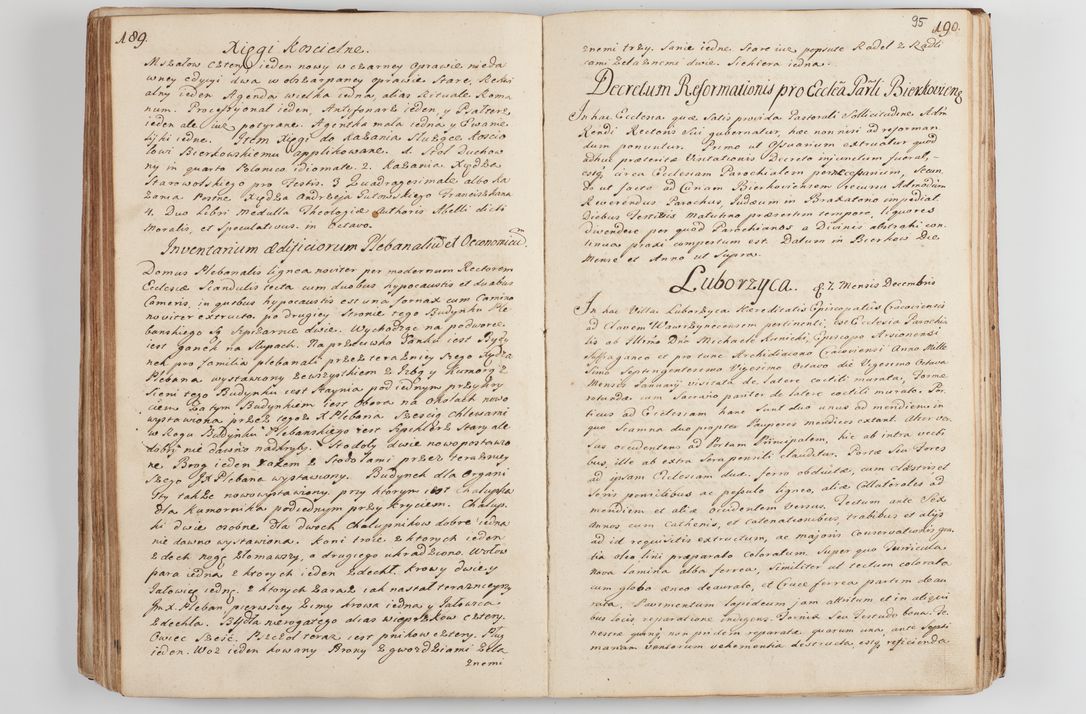 189.
Xięgi Koscielne.
Mszałow cztery ieden nowy w czarney oprawie nieda
wney edycyi dwa w obdarpaney oprawie stare, Rekwi
alny ieden. Agenda wielka iedna, alias Rituale Roma
num. Processyonał ieden, Antyfonarz ieden, y Psałterz
ieden ale iuż potyrane. Agentka mała iedna, y Ewanie
liyki iedne. Item Xięgi do Kazania Służące Koscio
łowi Bierkowskiemu applikowane. 1. Stół Duchow
ny in quarto Polonico idiomate. 2. Kazania Xiędza
Starowolskiego pro Festis. 3 Quadragesimale albo Ka
zania Postne Xiędza Andrzeja Gutowskiego Franciszkana
4. Duo Libri Medulla Theologiæ Authoris Melli dicti
Moralis, et Speculativus. in Octavo.
Inventarium Ædificiorum Plebanaliũ et Oeconomicũ
Domus Plebanalis lignea noviter per modernum Rectorem
Ecclesiæ Scandulis tecta cum duobus hypocaustis et duabus
Cameris, in quibus hypocaustis est una fornax cum Camino
noviter extructa, po drugiey stronie tego Budynku Ple
banskiego są Spiżarnie dwie. Wychodząc na podworze
iest ganek na słupach. Na przeciwko Ganku iest Budy
nek pro familia plebanali przez teraznieyszego Xiędza
Plebana wystawiony zewszystkiem z Izbą y Kumorą z
Sieni tego Budynku iest Staynia pod iednym przykry
ciem. Za tym Budynkiem iest Obora na okolach nowo
wystawiona przez tegoż X Plebana Sześcią Chlewami
w Rogu Budynku Plebanskiego iest Spichlerz Stary ale
dobry nie dawno nadkryty. Stodoły dwie nowo postawio
ne. Brog ieden razem z Stodołami przez terazniey
szego Jx Plebana wystawiony. Budynek dla Organi
sty także nowo wystawiony, przy ktorym iest Chałupka
dla Kumornika pod iednym przykryciem. Chałup
ki dwie osobne dla dwoch Chałupnikow dobre iedna
nie dawno wystawiona. Koni troie, z ktorych ieden
zdech nogę złomawszy, a drugiego ukradziono. Wołow
para iedna z ktorych ieden zdechł. Krowy dwie y
Jałowicę iednę, z ktorych zaraz iak nastał teraznieyszy
Jm x. Pleban, pierwszey zimy krowa iedna y Jałowica
zdechła. Bydła nierogatego alias wieprzkow cztery.
Owiec sześć. Pszczoł teraz iest pnikow cztery. Pług
ieden. Woz ieden kowany Brony z gwozdziami żela
znemi
95
190.
znemi trzy. Sanie iedne stare iuż popsute Radeł z Radli
cami żelaznemi dwie. Siekiera iedna.
Decretum Reformationis pro Eccles̃a Parl̃i Bierkovien̄
In hac Ecclesia quæ satis provida Pastorali Sollicitudine Adm̃
Rendi Rectoris sui gubernatur, hæc non nisi ad reforman
dum ponuntur. Primo ut Ossuarium extruatur quod
adhuc præteritæ Visitationis Decreto injunctum fuerat,
estq̃ circa Ecclesiam Parochialem pernecessarium, Secun
do ut facto ad Curiam Bierkoviensem recursu Admodum
Reverendus Parochus, Judæum in Braxatorio impediat
Diebus Festivis Matutino præsertim tempore, liquores
divendere per quod Parochianos a Divinis abstrahi con
tinua praxi compertum est. Datum in Bierkow Die
Mense et Anno ut supra.
Luborzyca. 7. Mensis Decembris
In hac Villa Luborzyca Hæreditatis Episcopatûs Cracoviensis
ad Clavem Wawrzyncensem pertinenti, est Ecclesia Parochia
lis ab Illmo Dño Michaele Kunicki, Episcopo Arsionensi
Suffraganeo et pro tunc Archidiacono Cracoviensi Anno Mille
simo Septingentesimo Vigesimo Octavo die Vigesima Octava
Mensis Januarij visitata de latere coctili murata, formæ
rotundæ cum Sacrario pariter de latere coctili murato. Por
ticus ad Ecclesiam hanc sunt duo unus ad meridiem in
quo Scamna duo propter Pauperes mendicos extant. Alter ver
sus occidentem ad Portam Principalem, hic ab intra vecti
bus, ille ab extra sera pensili clauditur. Portæ seu Fores
ad ipsam Ecclesiam duæ, ferro obductæ, cum claustris et
seris pensilibus ac pessulo ligneo, aliæ Collaterales ad
meridiem et aliæ occidentem versus. Tectum ante Sex
Annos cum Cathenis, et catenationibus, trabibus et alijs
ad id requisitis extructum, ac majoris Conservationis gra
tia oleo lini præparato Coloratum. Super quo Turricula.
Nova lamina alba ferrea, similiter ut tectum colorata
cum globo æneo deaurato, et Cruce ferrea partim deau
rata. Pavimentum lapideum jam attritum et in aliqui
bus locis, reparatione indigens. Fornix seu Testudo bona. Fe
nestræ quinq̃ non pridem reparatæ, quarum una, ante Septi
manam ventorum vehementia destructa, estq̃ reficienda